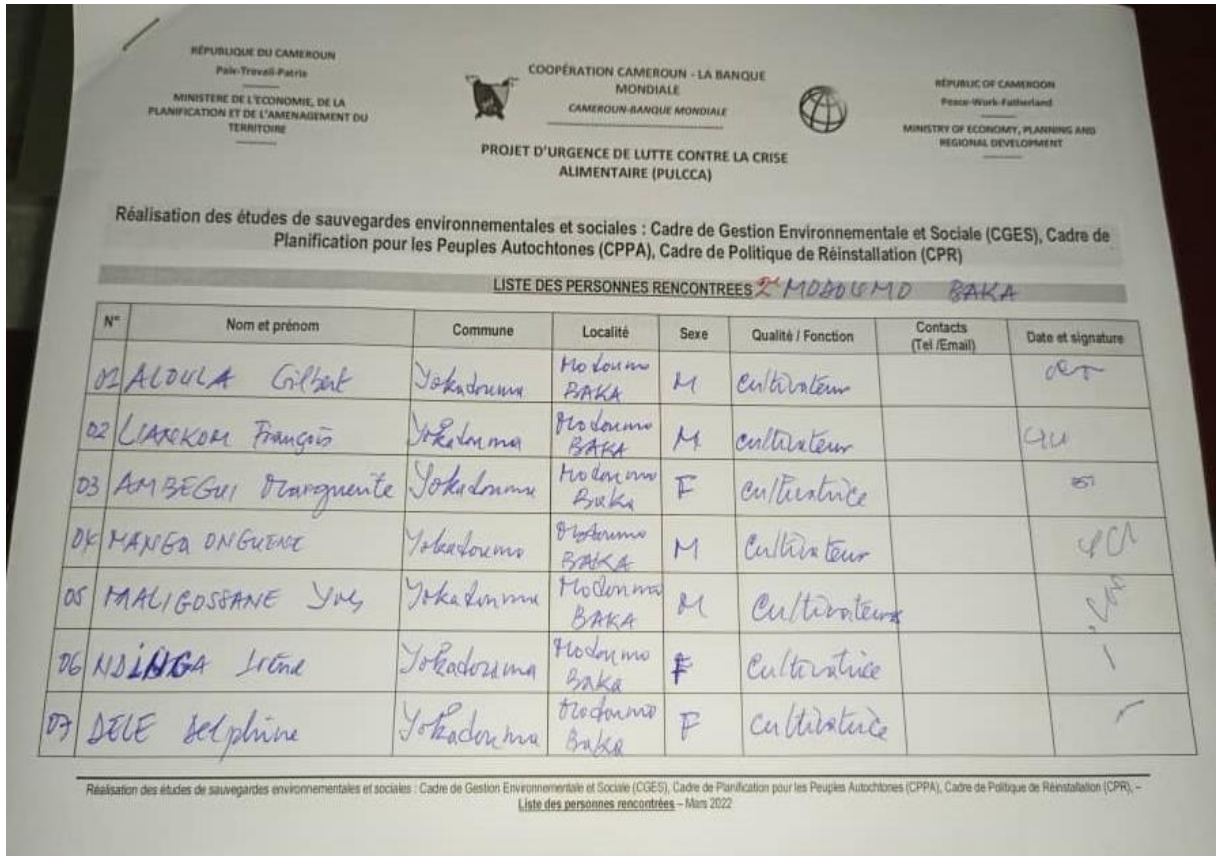 RÉPUBLIQUE DU CAMEROUN
Paix-Travail-Patrie
MINISTERE DE L'ECONOMIE, DE LA
PLANIFICATION ET DE L'AMENAGEMENT DU
TERRITOIRE
COOPÉRATION CAMEROUN - LA BANQUE
MONDIALE
CAMEROUN-BANQUE MONDIALE
RÉPUBLIC OF CAMEROON
Peace-Work-Fatherland
MINISTRY OF ECONOMY, PLANNING AND
REGIONAL DEVELOPMENT
PROJET D'URGENCE DE LUTTE CONTRE LA CRISE
ALIMENTAIRE (PULCCA)
Réalisation des études de sauvegardes environnementales et sociales : Cadre de Gestion Environnementale et Sociale (CGES), Cadre de
Planification pour les Peuples Autochtones (CPPA), Cadre de Politique de Réinstallation (CPR)
LISTE DES PERSONNES RENCONTREES MODOUMO BAKA
N° Nom et prénom Commune Localité Sexe Qualité / Fonction Contacts (Tel /Email) Date et signature
01 ALOULA Gilbert Yokadouma Modoumo BAKA M Cultivateur
02 François Yokadouma Modoumo BAKA M cultivateur
03 AMBEGUI Marguerite Yokadouma Modoumo Baka F Cultivatrice
04 MANGA ONGUENE Yokadouma Modoumo BAKA M Cultivateur
05 MAALIGOSSANE Yves Yokadouma Modoumo BAKA M Cultivateur
06 NDINGA Irène Yokadouma Modoumo Baka F Cultivatrice
07 DELE Delphine Yokadouma Modoumo Baka F Cultivatrice
Réalisation des études de sauvegardes environnementales et sociales : Cadre de Gestion Environnementale et Sociale (CGES), Cadre de Planification pour les Peuples Autochtones (CPPA), Cadre de Politique de Réinstallation (CPR), –
Liste des personnes rencontrées – Mars 2022